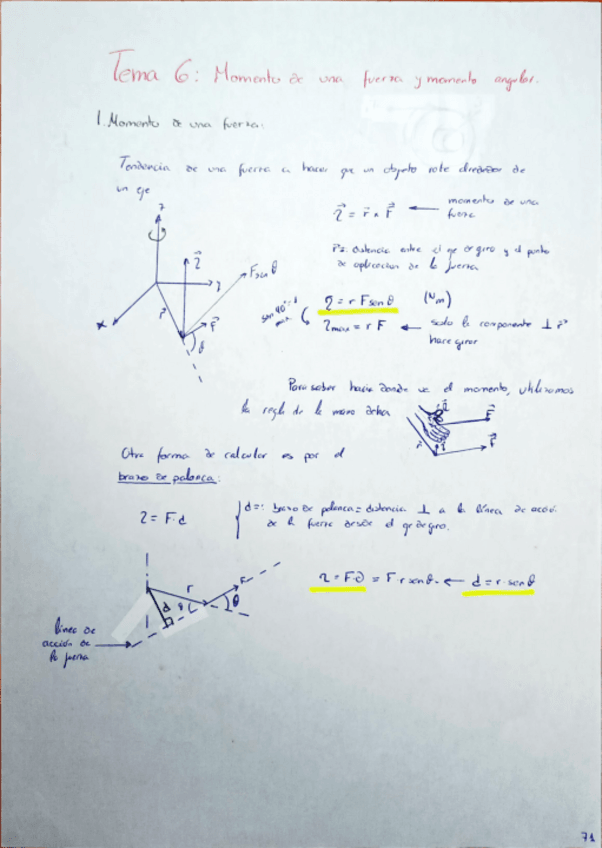 Tema 6: Momento de una fuerza y momento angular.
1. Momento de una fuerza:
Tendencia de una fuerza a hacer que un objeto rote alrededor de
un eje
τ⃗ = r⃗ x F⃗ ← momento de una
fuerza
r⃗ = distancia entre el eje de giro y el punto
de aplicacion de la fuerza
z
τ⃗
F senθ
y
x
r⃗
F⃗
θ
τ = r F senθ (Nm)
sen 90º = 1
max
τmax = r F ← solo la componente ⊥ r⃗
hace girar
Para saber hacia donde va el momento, utilizamos
la regla de la mano derecha
F⃗
r⃗
F⃗
Otra forma de calcular es por el
brazo de palanca:
τ = F·d
d =: brazo de palanca = distancia ⊥ a la línea de acción
de la fuerza desde el eje de giro.
r
F
d
θ
θ
τ = F·d = F·r senθ. ← d = r·senθ
línea de
acción de
la fuerza
71